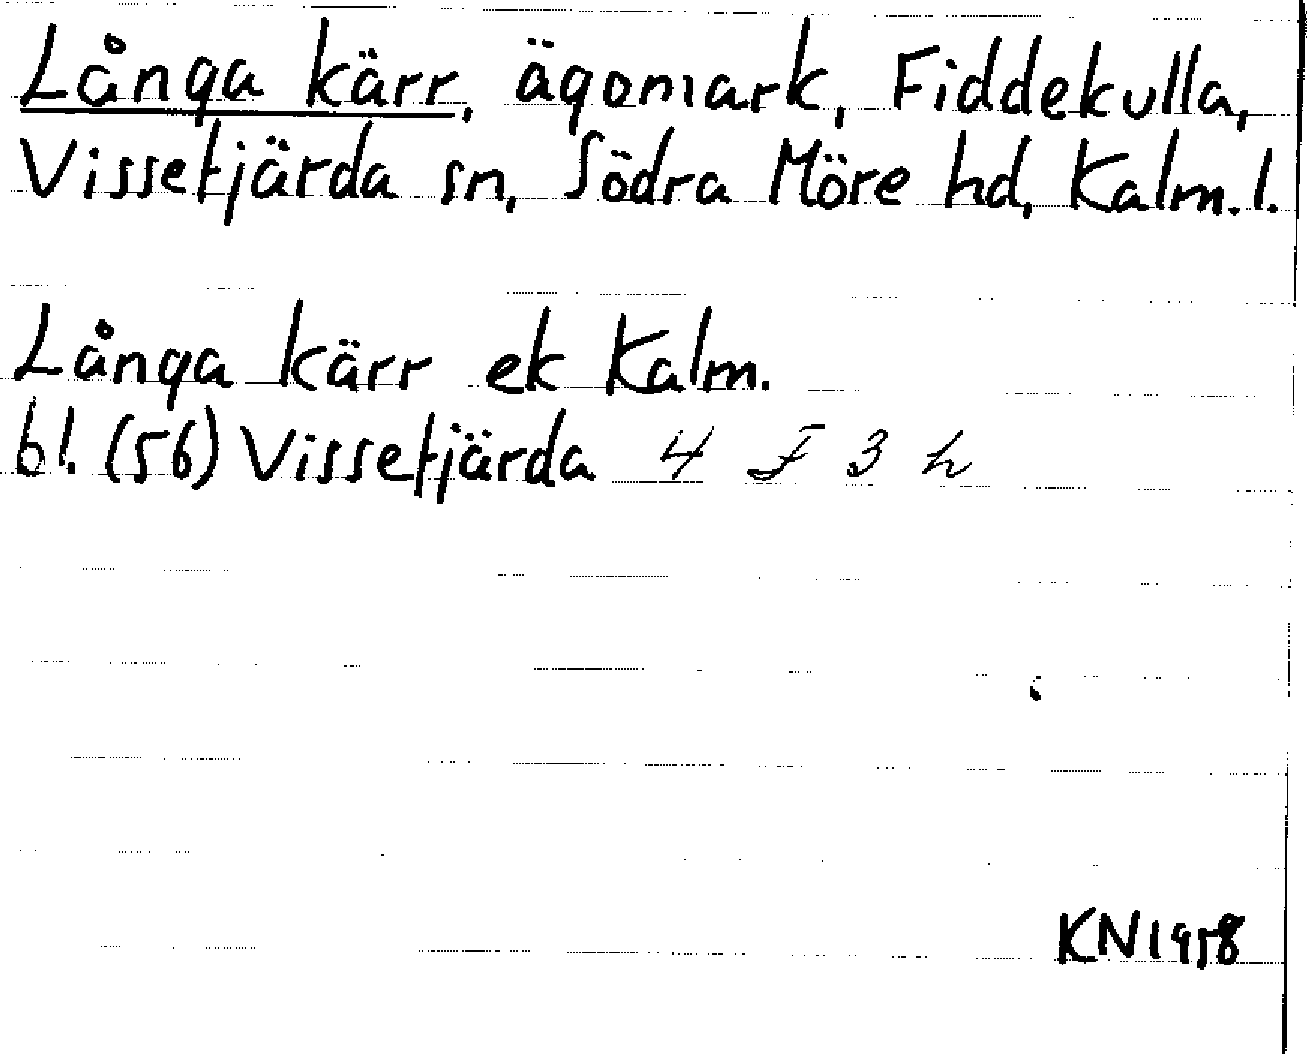 Långa kärr, ägomark, Fiddekulla,
Vissefjärda sn, Södra Möre hd, Kalm. l.
Långa kärr ek Kalm.
bl. (56) Vissefjärda 4 F 3 h
KN 1958